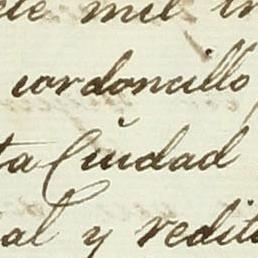 ete mil tr
cordoncillo,
ta Ciudad
ial y redit